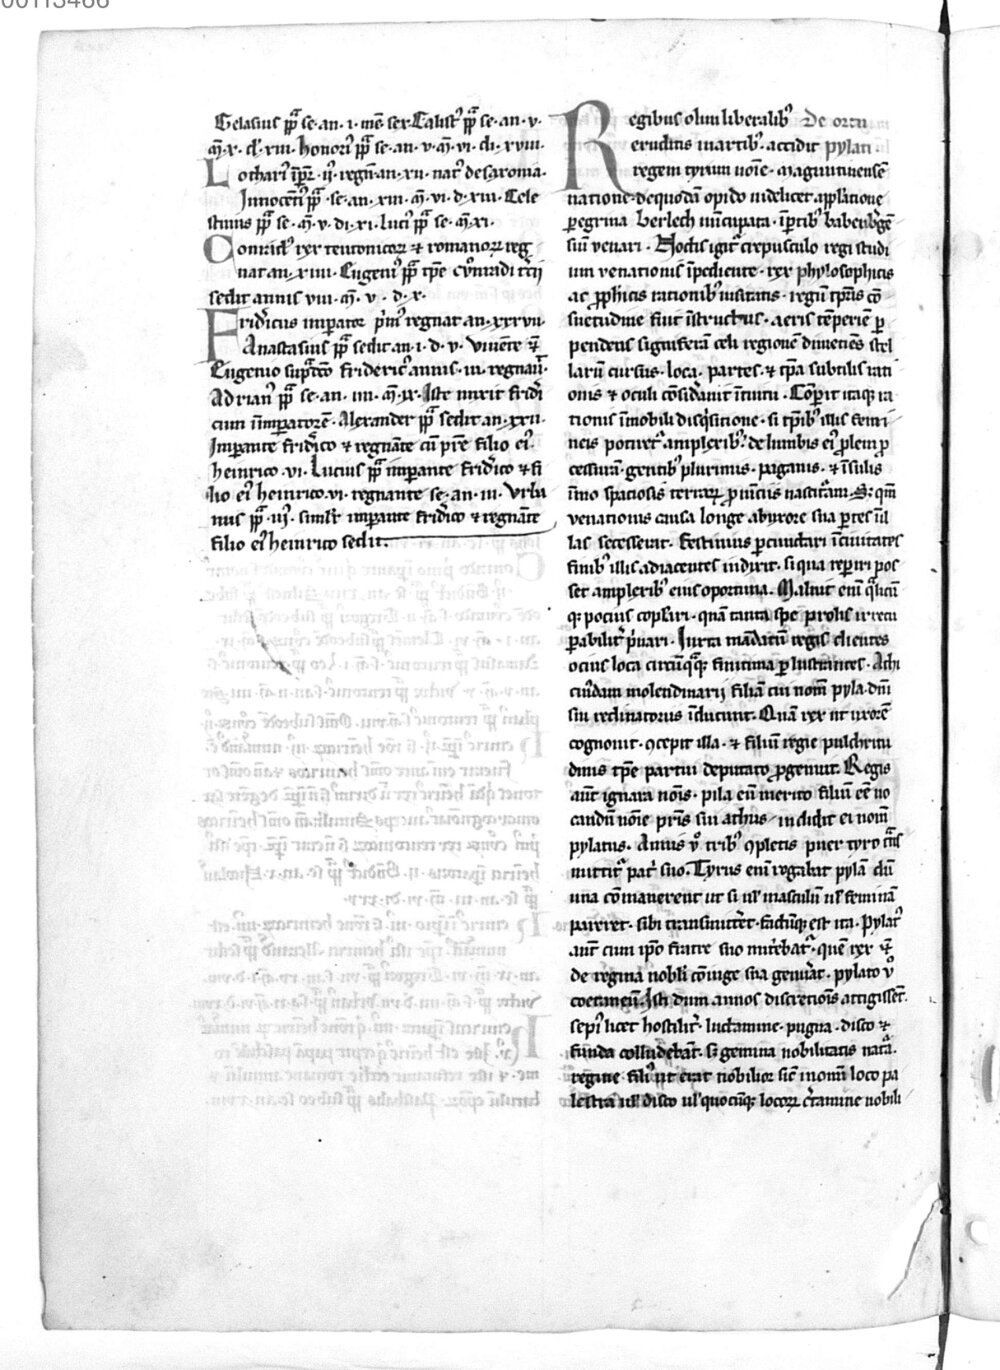 00113466
Gelasius pp̄a se. an. i. mē. sex. Calist᷒ pp̄a se. an. v.
m̄. x. d. xiii. honori᷒ pp̄a se. an. v. m̄. vi. di. xviii.
Lothari᷒ ip̄r. ii. regn̄. an. xii. nat᷒ de saxonia.
Innocēti᷒ pp̄a. se. an. xiii. m̄. vi. d. xiii. Cele
stinus pp̄a se. m̄. v. di. xi. luci᷒ pp̄a se. m̄. xi.
Conrad᷒ rex teutonicoꝝ ⁊ romanoꝝ reg
nat an. xiiii. Eugeni᷒ pp̄a tp̄e cōnradi tcii
sedit annis viii. m̄. v. d. x.
Fridericus imperator p̓m᷒ regnat an. xxxvii.
Anastasius pp̄a sedit an. i. d. v. viuente
Eugenio supͣ. frideric᷒ annis. iii. regnau̓.
Adrian᷒ pp̄a se. an. iiii. m̄. ix. Iste unxit fridi
cum in imperatorē. Alexander pp̄a sedit an. xxii.
Imperante frid̓ico ⁊ regnāte cū p̄re filio ei᷒.
heinrico. vi. Lucius pp̄a imperante frid̓ico ⁊ fi
lio ei᷒ heinrico. vi. regnante se. an. iii. Vrba
nus pp̄. iii. simil̓r imperante frid̓ico ⁊ regnāte
filio ei᷒ heinrico sedit.
Regibus olim liberalib᷒ De ortu
eruditis in artib᷒. accidit pylati.
regem tyrum noīe. maguntinensē
natione. de quodā opido uidelicet app̄llatione
ꝑegrina berlech nūcupata. ī ꝑtib᷒ babenb̓gē
siū venari. Noctis igit̓ crepusculo regi studi
um venationis īpediente. rex phylosophicis
ac ꝓphicis rationib᷒ insitatis. regū tp̄ris cō
suetudine fiuit īstructus. aeris tēperiē ꝑ
pendens signiferā celi regionē dimetiēs stel
larū cursus. loca. partes. ⁊ tp̄a subtilis rati
onis ⁊ oculi cōsid̓auit ītuitu. Cōp̓it itaqꝫ ra
tionis īmobili disq̓sitione. si tp̄ib᷒ illis femi
neis potiret᷒ amplexib᷒. de lumbis ei᷒ plem ꝓ
cessurā. gentib᷒ plurimis. paganis. ⁊ īsulis
īmo spaciosis terraꝝ ꝓuinciis nascituram. S; qm̄
venationis causa longe ab uxore sua ꝑtes ī il
las secesserat. festinius ꝑcunctari ī ciuitates
finib᷒ illis adiacentes indixit. si qua reperiri pos
set amplexib᷒ eius oportuna. Maluit eni q̓licū
qꝫ pocius copl̓ari. quā tanta spe prolis irrecu
ꝑabilit̓ p̓uari. Iuxta mādatū regis clientes
ocius loca circūquaqꝫ finitima ꝑlustrantes. Achi
cuiꝰdam molendinarii filiā cui nom̄ pyla dn̄i
sui reclinatorius īducunt. Quā rex ut uxorē
cognouit. ꝯcepit illa. ⁊ filiū regie pulchritu
dinis tp̄e partui deputato ꝓgenuit. Regis
aūt ignara noīs. pila eū merito filiū eē uo
candū noīe pr̄is sui athus. indidit ei nom̄
pylatus. Annis v̓ trib᷒ ꝯpletis puer tyro t̓ns
mittit̓ patͥ suo. Tyrus eni rogabat pylā dū
una cōmanerent ut si ul̓ masculū ul̓ feminā
pareret. sibi transmitt̓et. factūqꝫ est ita. Pylat᷒
aūt cum ip̄o fratre suo nutriebat̓. quē rex
de regina nobili cōiuge sua genu̓at. pylato v̓
coetaneū. Ast dum annos discretiōis attigissēt.
sepi᷒ licet hostilit̓. luctamine. pugna. disco ⁊
funda colludebāt. s; gemina nobilitatis natā.
regine fili᷒ ut erat nobilior sic in omni loco pa
lestra ul̓ disco ul̓ quocūqꝫ locoꝝ c̓tamine nobili